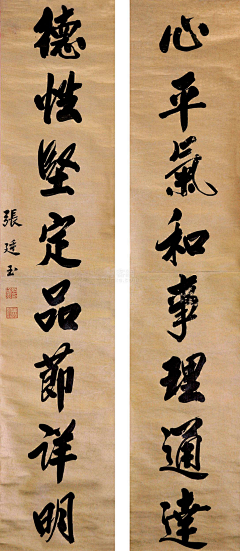 心平氣和事理通達
德性堅定品節詳明
張廷玉